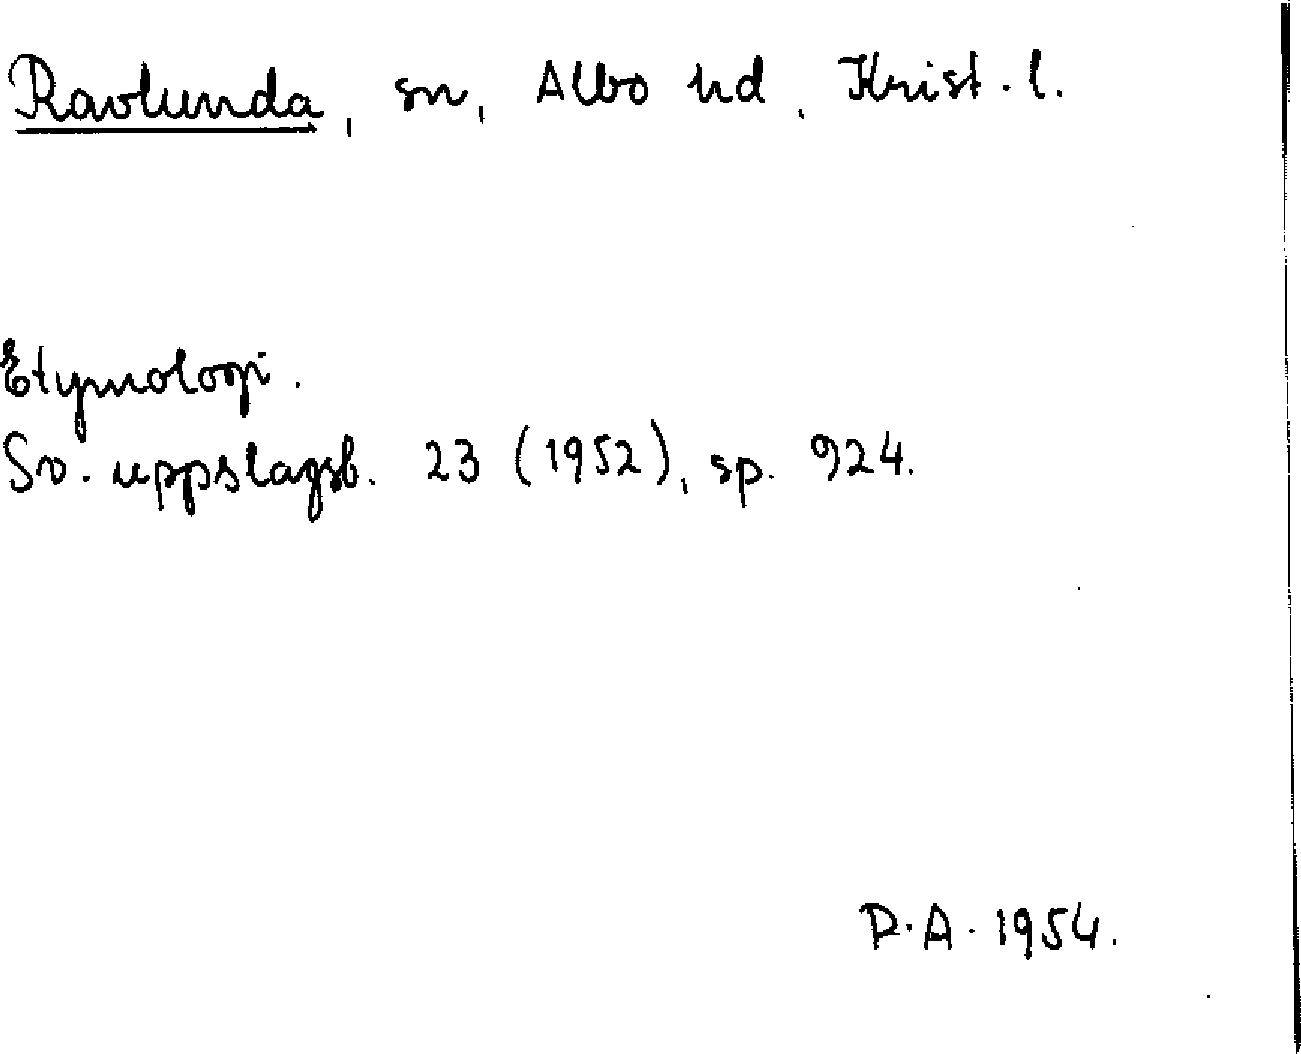 Ravlunda, sn, Albo hd, Krist. l.
Etymologi.
Sv. uppslagsb. 23 (1952), sp. 924.
D.A. 1954.